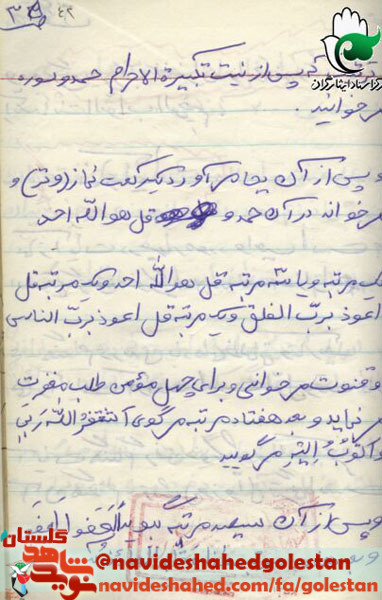 ۴۲
که پس از نیت تکبیرة الاحرام حمد و سوره
میخوانید.
و پس از آن بجا میآورد یک رکعت نماز (وتر) و
میخواند در آن حمد و قل هو الله احد
یک مرتبه و یا سه مرتبه قل هو الله احد و یک مرتبه قل
اعوذ بربّ الفلق و یک مرتبه قل اعوذ بربّ الناس
و قنوت میخوانی و برای چهل مؤمن طلب مغفرت
مینماید و بعد هفتاد مرتبه میگوی استغفرُ اللّه ربی
و اتُوبُ اِلیَهِ میگویید
و پس از آن سیصد مرتبه بگوید اَلعَفو العفو
گلستان
نوید شاهد
@navideshahedgolestan
navideshahed.com/fa/golestan